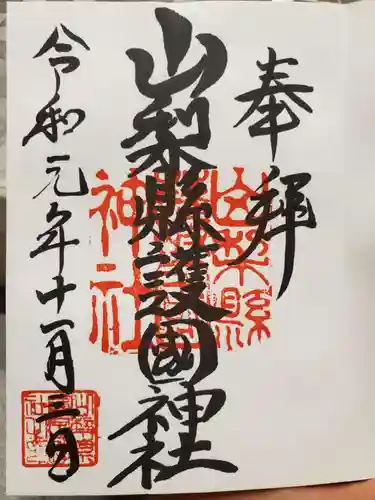 奉拝
山梨縣護國神社
令和元年十一月三日
山梨縣護國神社